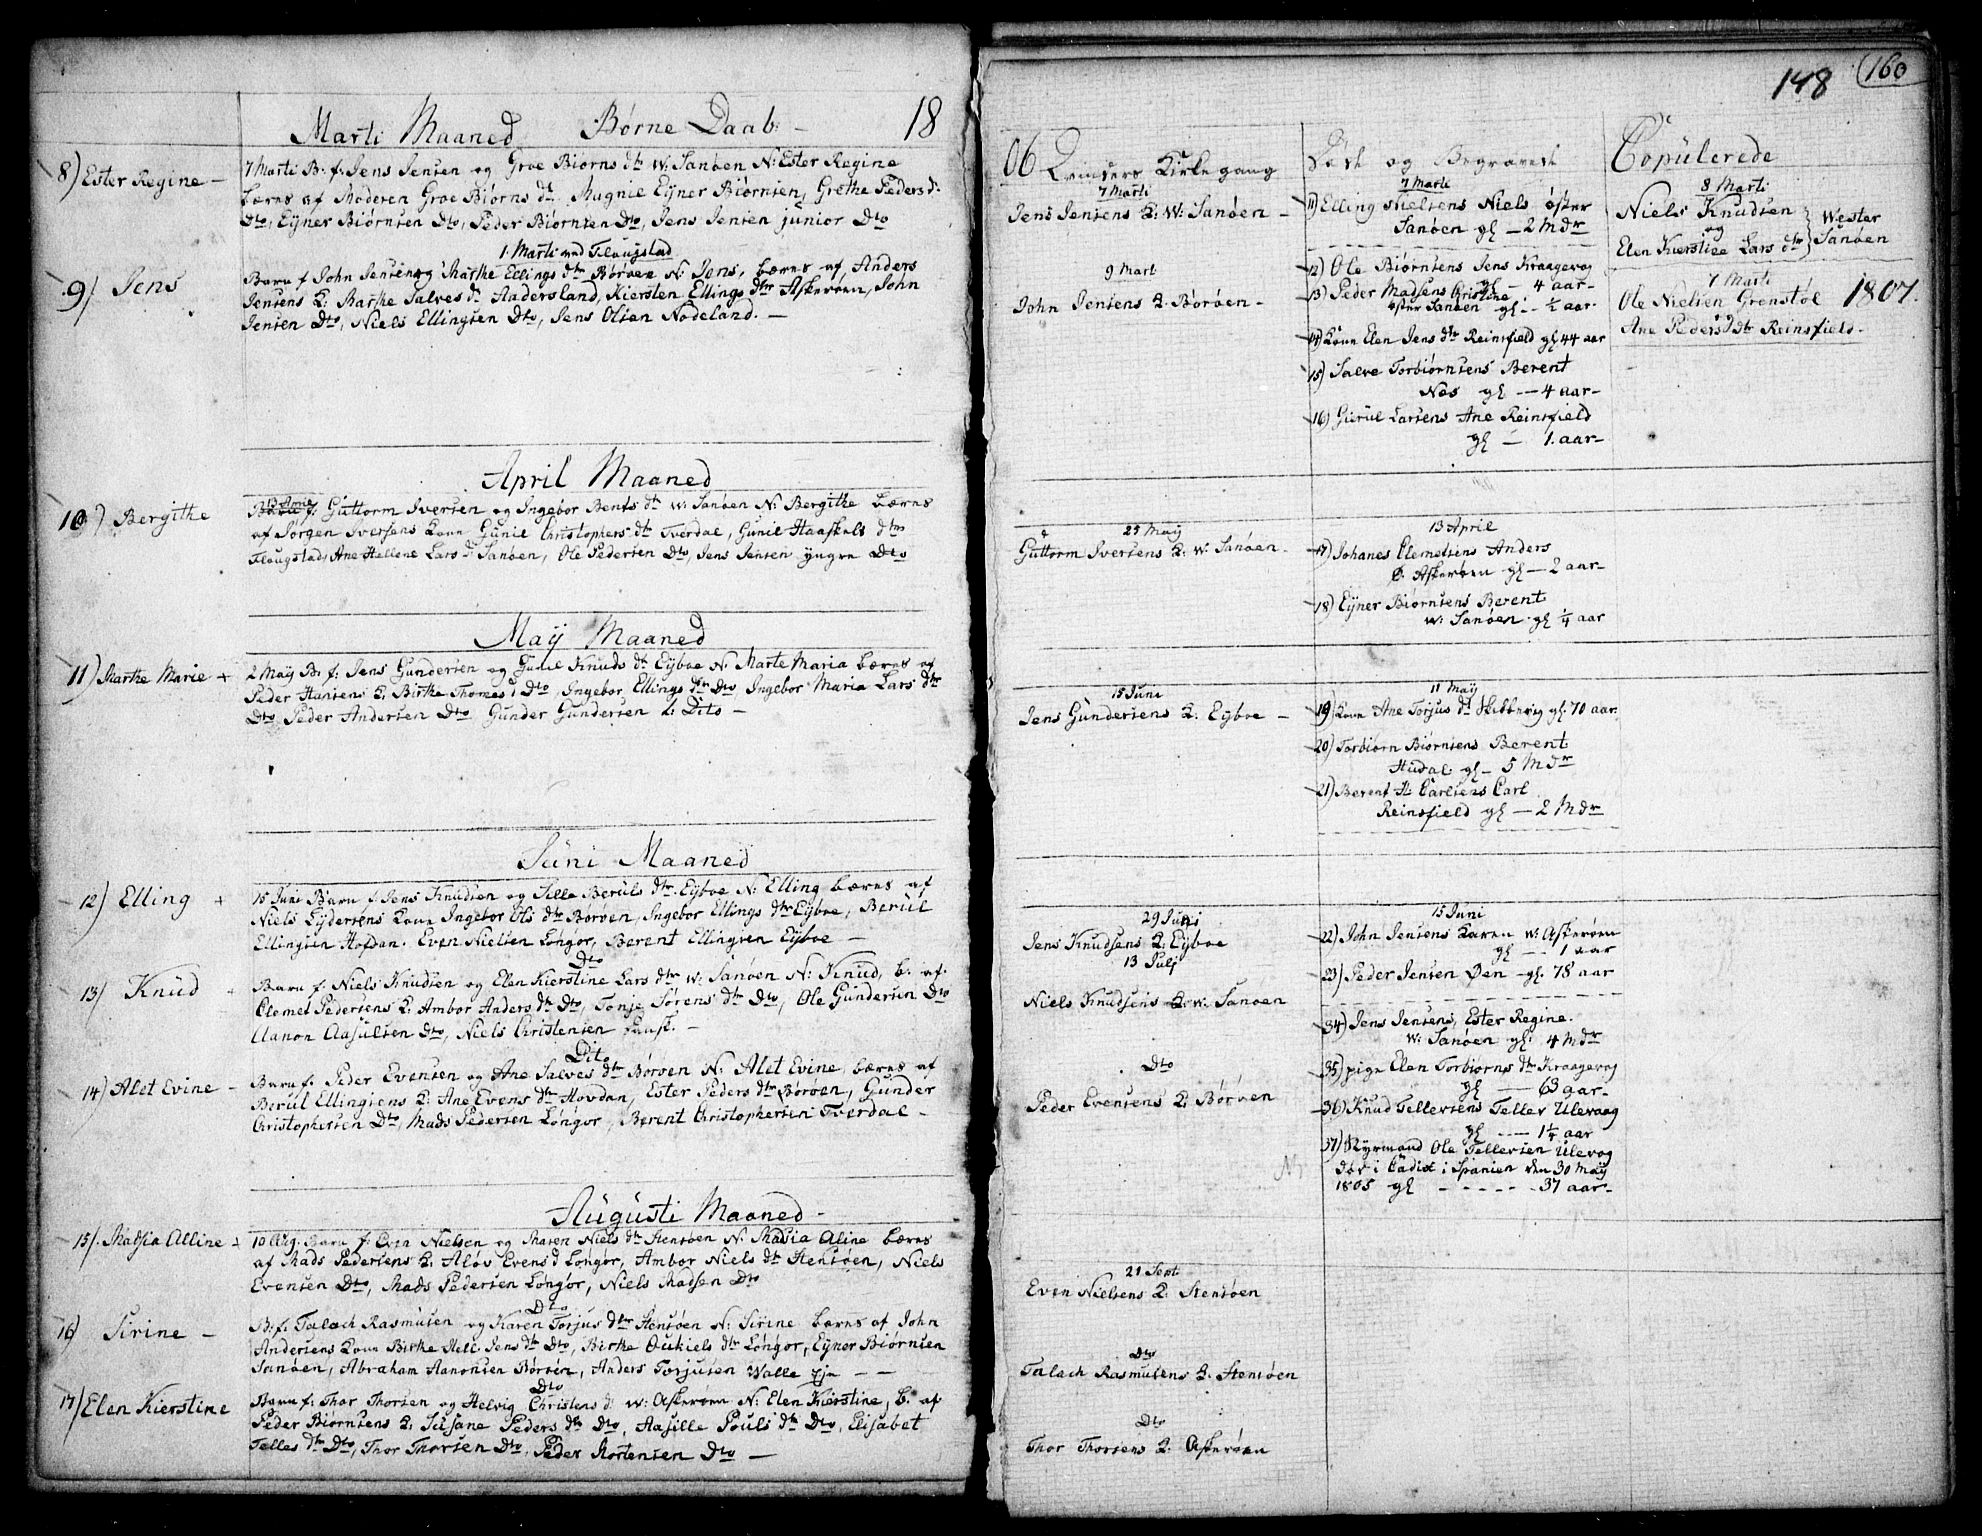 Marti Maaned Børne Daab. 18
8) Ester Regine
7 Marti B. f. Jens Jensen og Groe Biørns dtr W: Sanøen N: Ester Regine
bæres af Moderen Groe Biørns dtr Mugnie Eÿner Biørnsen, Grethe Peders d.
Dto, Eÿner Biørnsen Dto, Peder Biørnsen Dto, Jens Jensen junior Dto
1 Marti ved Flougstad
9) Jens
Barn f John Jensen og Marthe Ellings dtr Børøen N: Jens, bæres af Anders
Jensens K: Marthe Salves d. Aadersland, Kiersten Ellings dtr Askerøen, John
Jensen Dto, Niels Ellingsen Dto, Jens Olsen Nodeland.
April Maaned
10) Bergithe
Barn f. Guttorm Iversen og Ingebor Bents dtr W: Sanøen N: Bergithe bæres
af Jørgen Iversens Kone Gunil Christophers dtr Tverdal, Gunil Haaskels dtr
Flougstad, Ane Hellene Lars d. Sanøen, Ole Pedersen Dto, Jens Jensen yngre Dto
Maÿ Maaned
11) Marthe Marie
2 Maÿ B. f: Jens Gundersen og Gunil Knuds dtr Eÿboe N: Marte Maria bæres af
Peder Hansens K: Birthe Thomes d Dto, Ingebor Ellings dtr Dto, Ingebor Maria Lars dtr
Dto, Peder Andersen Dto, Gunder Gundersen Dito
Juni Maaned
12) Elling
15 Juni Barn f. Jens Knudsen og Sille Beruls dtr Eÿboe N: Elling bæres af
Niels Eÿdersens Kone Ingebor Ols dtr Børøen, Ingebor Ellings dtr Eÿboe, Berul
Ellingsen Hofdan. Even Nielsen Longør, Berent Ellingsen Eÿboe
Dto
13) Knud
Barn f. Niels Knudsen og Elen Kierstine Lars dtr W: Sanøen N: Knud, b. af.
Clemet Pedersens K: Ambor Anders dtr Dto, Tonje Sørens dtr Dto, Ole Gundersen Dto
Aanon Aasulsen Dto, Niels Christensen
Dito
14) Alet Evine
Barn f. Peder Evensen og Ane Salves dtr Børøen N: Alet Evine bæres af
Berul Ellingsens K: Ane Evens dtr Hovdan, Ester Peders dtr Børøen, Gunder
Christophersen Dto, Mads Pedersen Longør, Berent Christophersen Tverdal
Augusti Maaned
15) Madsia Alline
10 Aug. Barn f. Even Nielsen og Maren Niels dtr Stensøen N: Madsia Aline bæres
af Mads Pedersens K: Aløv Evens d Longør, Ambor Niels dtr Stensøen, Niels
Evensen Dto, Mads Pedersen Longør, Niels Madsen Dto
Dto
16) Sirine
B. f. Talach Rasmusen og Karen Torjus dtr Stensøen N: Sirine bæres af John
Andersens Kone Birthe Jens dtr Dto, Birthe Oukiels dtr Longør, Eÿner Biørnsen
Sanøen, Abraham Aanonsen Børøen, Anders Torjusen Walle
Dto
17) Elen Kierstine
Barn f: Thor Thorsen og Helvig Christens d: W: Askerøen N: Elen Kierstine, b. af
Peder Biørnsens K: Susane Peders dtr Dto, Aasille Pouls dtr Dto, Elisabet
Telles dtr Dto, Thor Thorsen Dto, Peder Mortensen Dto
148 160
06 Qvinders Kirkegang
7 Marti
Jens Jensens K: W: Sanøen
9 Mart
John Jensens K: Børøen
25 Maÿ
Guttorm Iversens K: W: Sanøen
15 Juni
Jens Gundersens K: Eÿboe
29 Junj
Jens Knudsens K: Eÿboe
13 Julj
Niels Knudsens K: W: Sanøen
Dto
Peder Evensens K: Børøen
21 Sept
Even Nielsens K: Stensøen
Dto
Talach Rasmusens K: Stensøen
Dto
Thor Thorsens K: Askerøen
Død og Begravet
7 Marti
11) Elling Nielsens Niels øster
Sanøen gl 2 Mdr
12) Ole Biørnsens Jens Kraagevog
gl 4 aar
13) Peder Madsens Cristine
øster Sanøen gl 1/2 aar
14) Kone Elen Jens dtr Reinsfield gl 44 aar
15) Salve Torbiørnsens Berent
Næs gl 4 aar
16) Gierul Larsens Ane Reinsfield
gl 1. aar
13 April
17) Johanes Clemetsens Anders
Ø. Askerøen gl 2 aar
18) Eÿner Biørnsens Berent
W: Sanøen gl 1/4 aar
11 Maÿ
19) Kone Ane Torjus d. Skibbevig gl: 70 aar
20) Torbiørn Biørnsens Berent
Hudal gl 5 Mdr
21) Berent H: Carlsens Carl
Reinsfield gl 2 Mdr
15 Juni
22) John Jensens Karen W: Askerøen
gl 1 aar
23) Peder Jensen Øen gl. 78 aar
34) Jens Jensens, Ester Regine.
W: Sanøen gl: 4 Mdr
35) pige Elen Torbiørns dtr Kraagevog
gl 63 aar
36) Knud Tellefsens Tellev Ulevaag
gl 1 1/4 aar
37) Styrmand Ole Tellefsen Ulevog
døe i Cadix i Spanien den 30 Maÿ
1805 gl 37 aar
Copulerede
8 Marti
Niels Knudsen
og
Elen Kierstine Lars dtr
Wester
Sanøen
7 Marti
Ole Nielsen Grenstøl 1807.
og
Ane Peders dtr Reinsfield